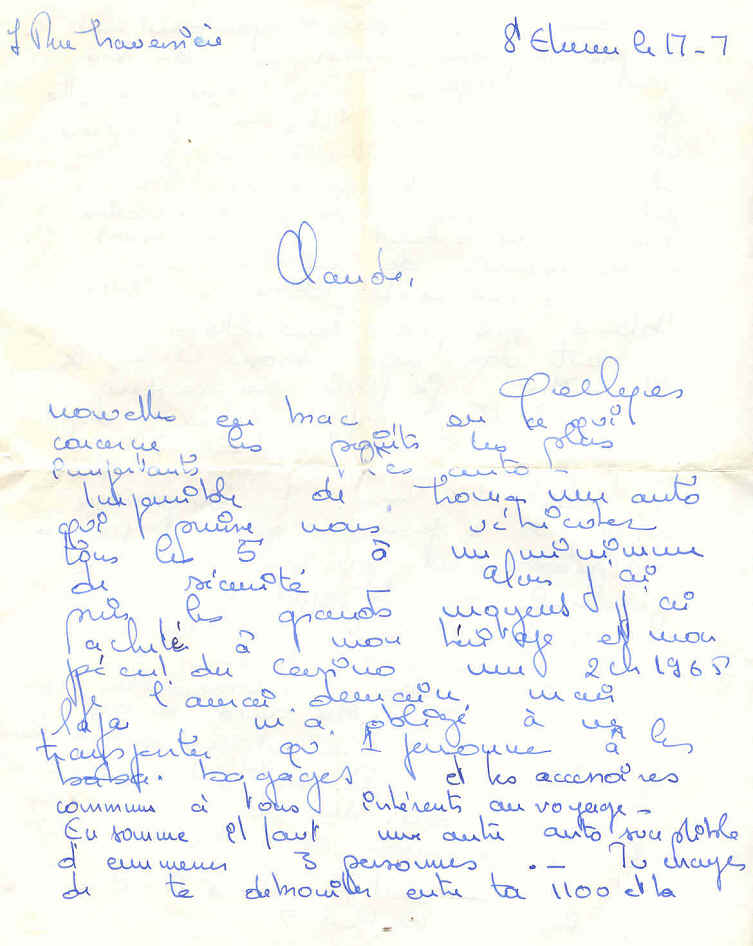 7 Rue Traversière
St Etienne le 17-7
Claude,
Quelques
nouvelles en vrac en ce qui
concerne les points les plus
importants : les auto -
Impossible de trouver une auto
qui puisse nous véhiculer
tous les 5 à un minimum
de sécurité Alors j'ai
pris les grands moyens j'ai
acheté à mon
pécul du casino une 2 ch 1965
Je l'aurai demain mais
Papa m'a obligé à ne
transporter qu'1 personne + les
bagages et les accessoires
communs à tous inhérents au voyage -
En somme il faut une autre auto susceptible
d'emmener 3 personnes . - Tu charges
de te débrouiller entre ta 1100 et la